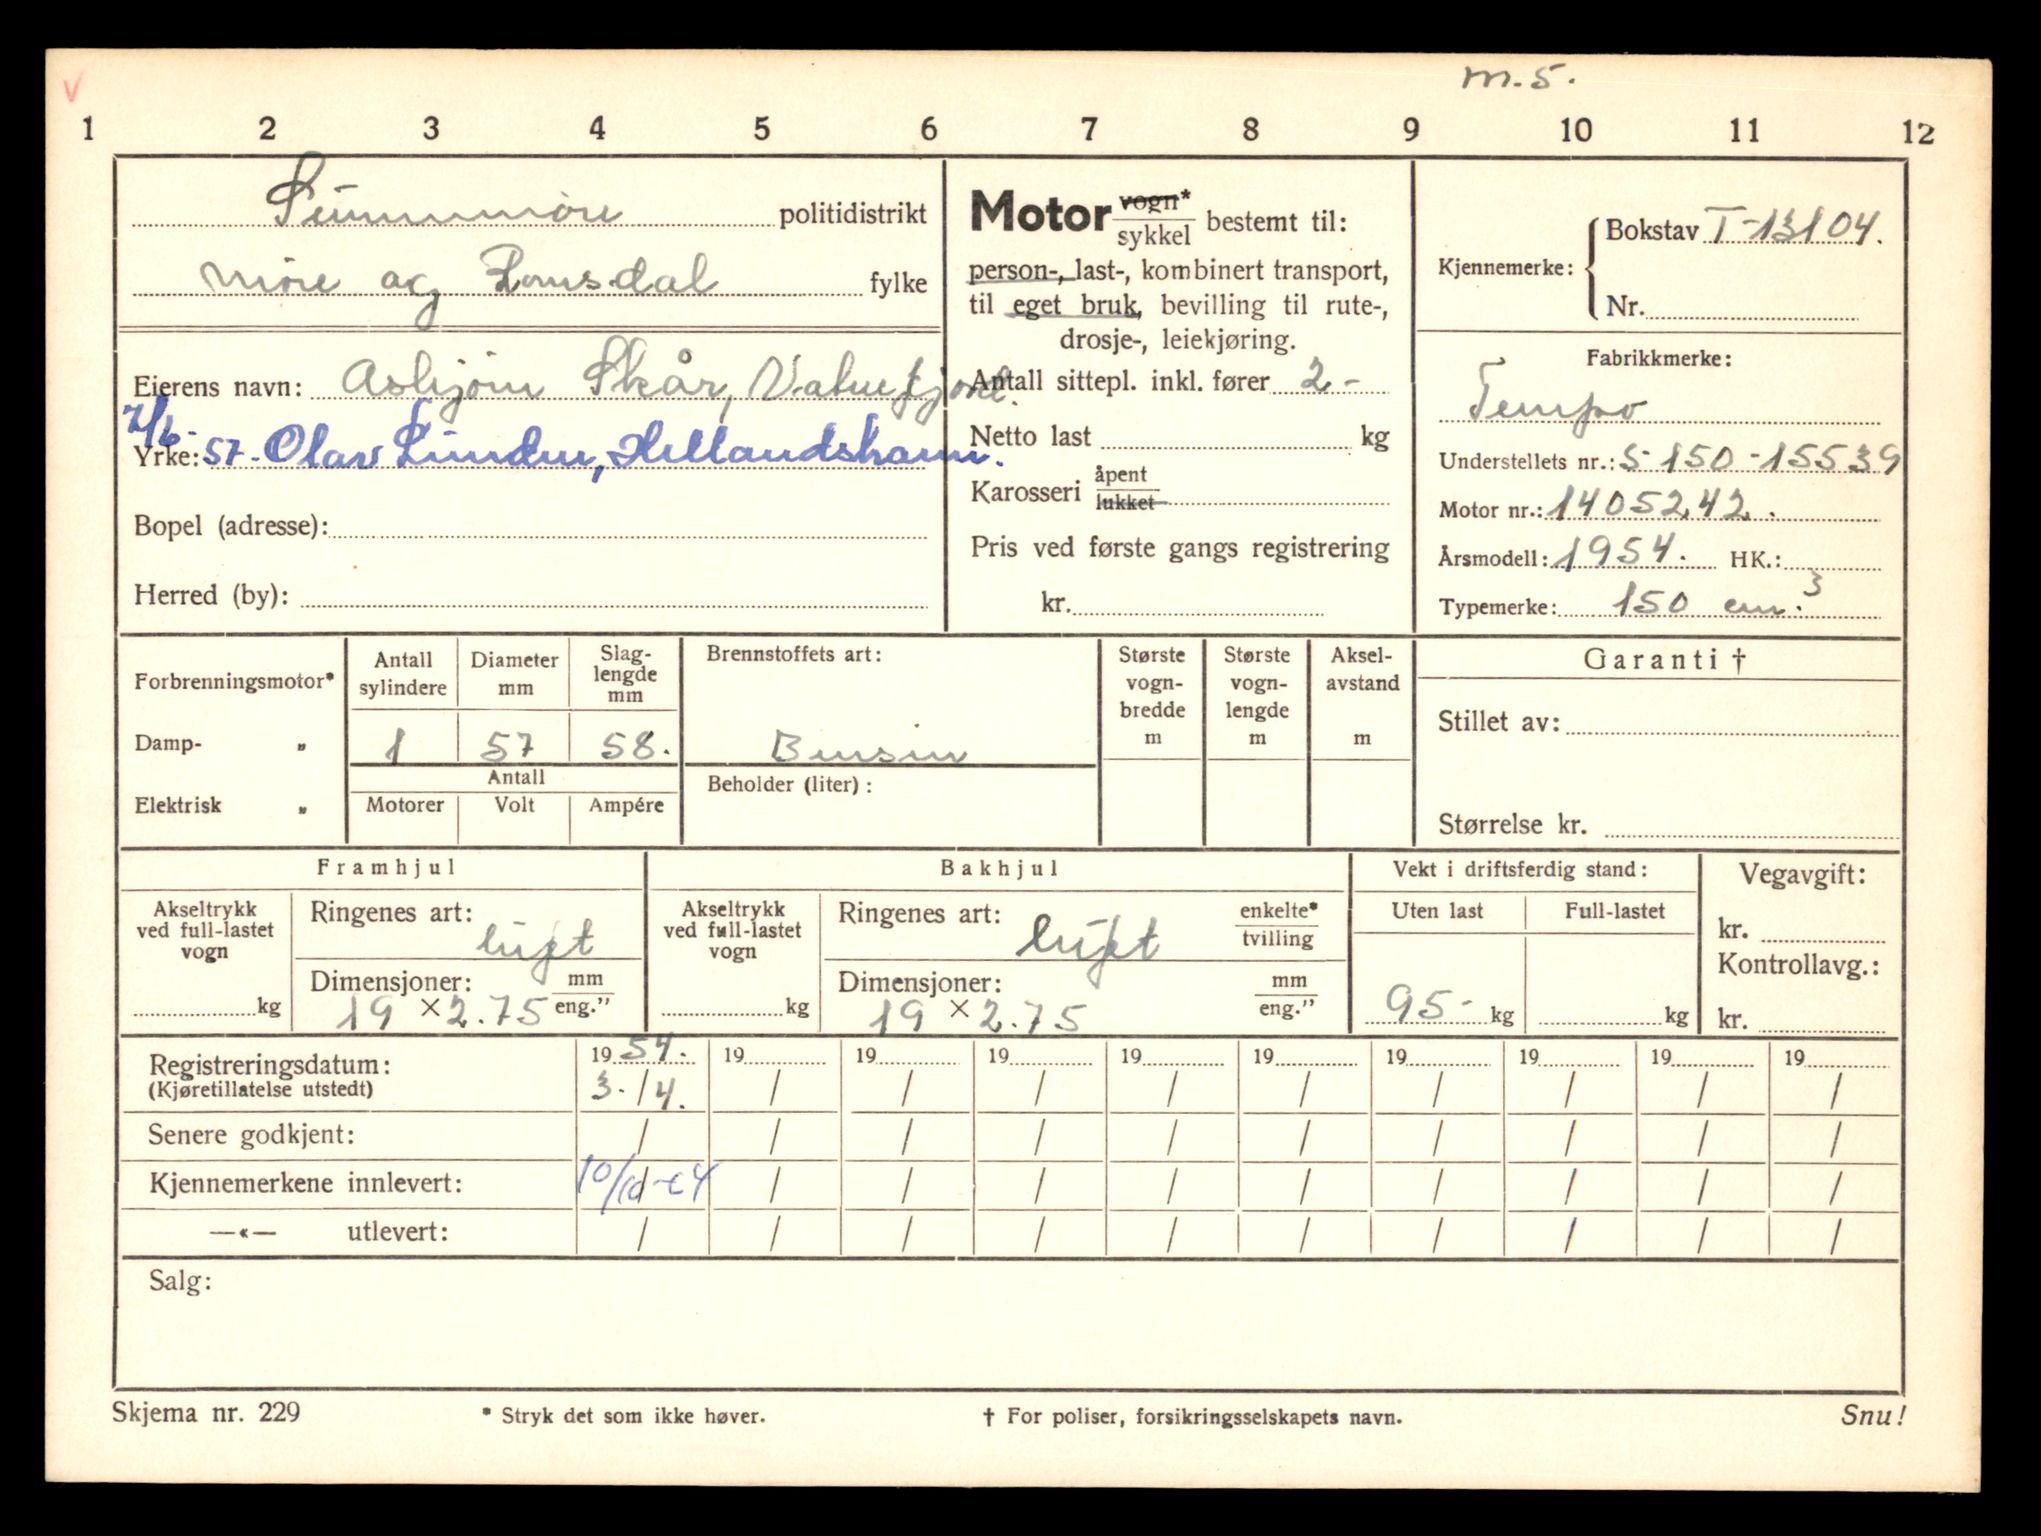 V
m. 5.
1 2 3 4 5 6 7 8 9 10 11 12
Sunnmøre politidistrikt
Møre og Romsdal fylke
Eierens navn: Asbjørn Skår, Vatnefjord.
7/6-
Yrke: 57- Olav Lunden, Hellandshamn.
Bopel (adresse):
Herred (by):
Motor vogn* / sykkel bestemt til:
person-, last-, kombinert transport,
til eget bruk, bevilling til rute-,
drosje-, leiekjøring.
Antall sittepl. inkl. fører 2.-
Netto last kg
Karosseri åpent / lukket
Pris ved første gangs registrering
kr.
Kjennemerke: Bokstav T-13104.
Nr.
Fabrikkmerke:
Tempo
Understellets nr.: S-150-15539
Motor nr.: 1405242.
Årsmodell: 1954. HK.:
Typemerke: 150 cm.3
Forbrenningsmotor*
Damp- „
Elektrisk „
Antall sylindere
Diameter mm
Slag-lengde mm
1 57 58.
Antall
Motorer Volt Ampére
Brennstoffets art:
Bensin
Beholder (liter):
Største vogn-bredde m
Største vogn-lengde m
Aksel-avstand m
Garanti †
Stillet av:
Størrelse kr.
Framhjul
Akseltrykk ved full-lastet vogn
kg
Ringenes art: luft
Dimensjoner: mm / eng."
19 × 2.75
Bakhjul
Akseltrykk ved full-lastet vogn
kg
Ringenes art: luft enkelte* / tvilling
Dimensjoner: mm / eng."
19 × 2.75
Vekt i driftsferdig stand:
Uten last Full-lastet
95- kg kg
Vegavgift:
kr.
Kontrollavg.:
kr.
Registreringsdatum: 19 54. 19 19 19 19 19 19 19 19 19
(Kjøretillatelse utstedt) 3. / 4. / / / / / / / / /
Senere godkjent: / / / / / / / / / /
Kjennemerkene innlevert: 10/10-64 / / / / / / / / /
—«— utlevert: / / / / / / / / / /
Salg:
Skjema nr. 229 * Stryk det som ikke høver. † For poliser, forsikringsselskapets navn. Snu!